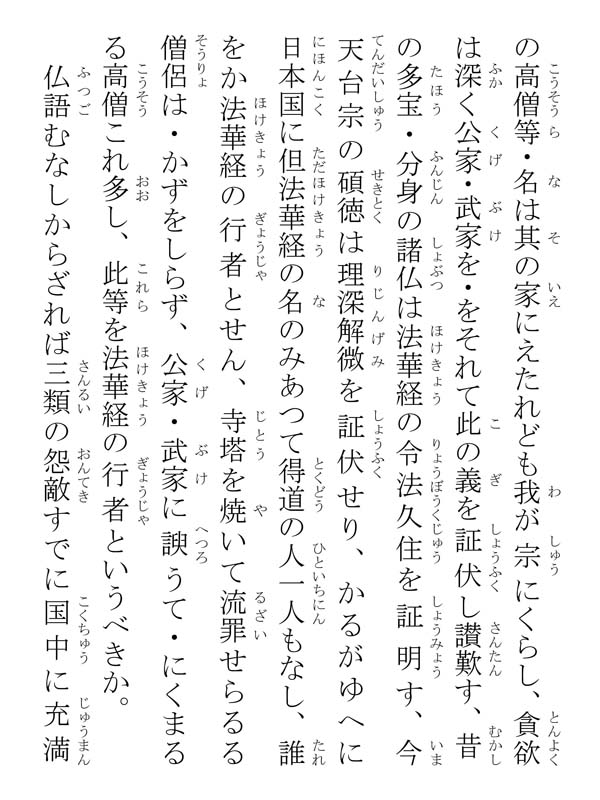 の高僧等・名は其の家にえたれども我が宗にくらし、貪欲
は深く公家・武家を・をそれて此の義を証伏し讃歎す、昔
の多宝・分身の諸仏は法華経の令法久住を証明す、今
天台宗の碩徳は理深解微を証伏せり、かるがゆへに
日本国に但法華経の名のみあつて得道の人一人もなし、誰
をか法華経の行者とせん、寺塔を焼いて流罪せらるる
僧侶は・かずをしらず、公家・武家に諛うて・にくまる
る高僧これ多し、此等を法華経の行者というべきか。
仏語むなしからざれば三類の怨敵すでに国中に充満